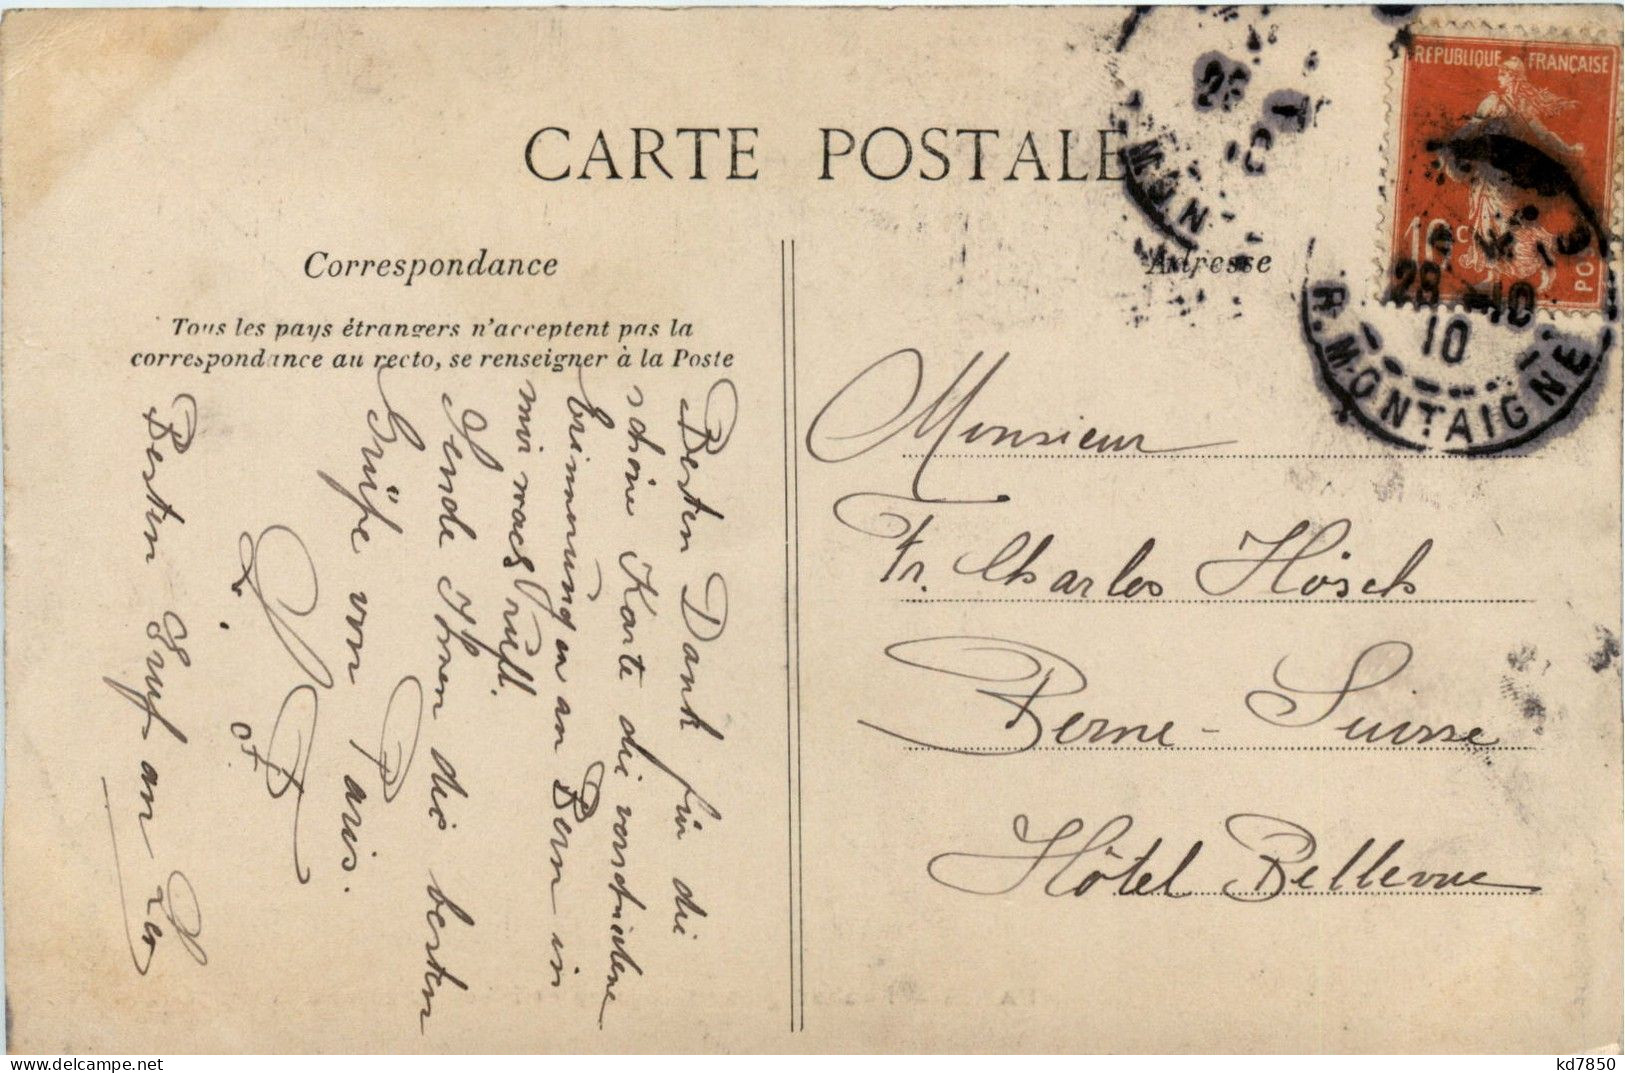 CARTE POSTALE
Correspondance
Tous les pays étrangers n'acceptent pas la
correspondance au recto, se renseigner à la Poste
Adresse
REPUBLIQUE FRANÇAISE
10 c
POSTES
28 - 10
10
R. MONTAIGNE
Monsieur
Fr. Charles Hösch
Berne - Suisse
Hôtel Bellevue
Besten Dank für die
schöne Karte die verschiedene
Erinnerungen an Bern in
mir wach ruft.
Sende Ihnen die besten
Grüße von Paris.
Besten Gruß an Leo
kd7850